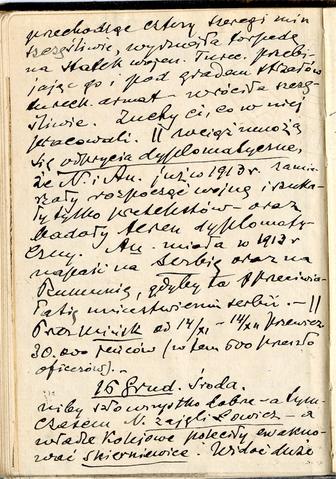 przechodząc cztery szeregi min
szczęśliwie, wypuściła torpedę
na statek wojen. Turec. przebi-
jając go i pod gradem strzałów
tureck. armat wróciła szczę-
śliwie. Zuchy ci, co w niej
pracowali. || wciąż mnożą
się odkrycia dyplomatyczne,
że N. i Au. już w 1913 r. zamie-
rzały rozpocząć wojnę i szuka-
ły tylko pretekstów oraz
badały teren dyplomaty-
czny. Au. miała w 1913 r
napaść na Serbię oraz na
Rumunię, gdyby ta przeciwia-
ła się zniszczeniu Serbii. – ||
Przez Mińsk od 14/XI – 14/XII przewiez.
30.000 jeńców (w tem 600 przeszło
oficerów). –
16 Grud. Środa.
niby szło wszystko dobrze – a tym-
czasem N. zajęli Łowicz – a
władze kolejowe poleciły ewakuo-
wać Skierniewice. Widać duże